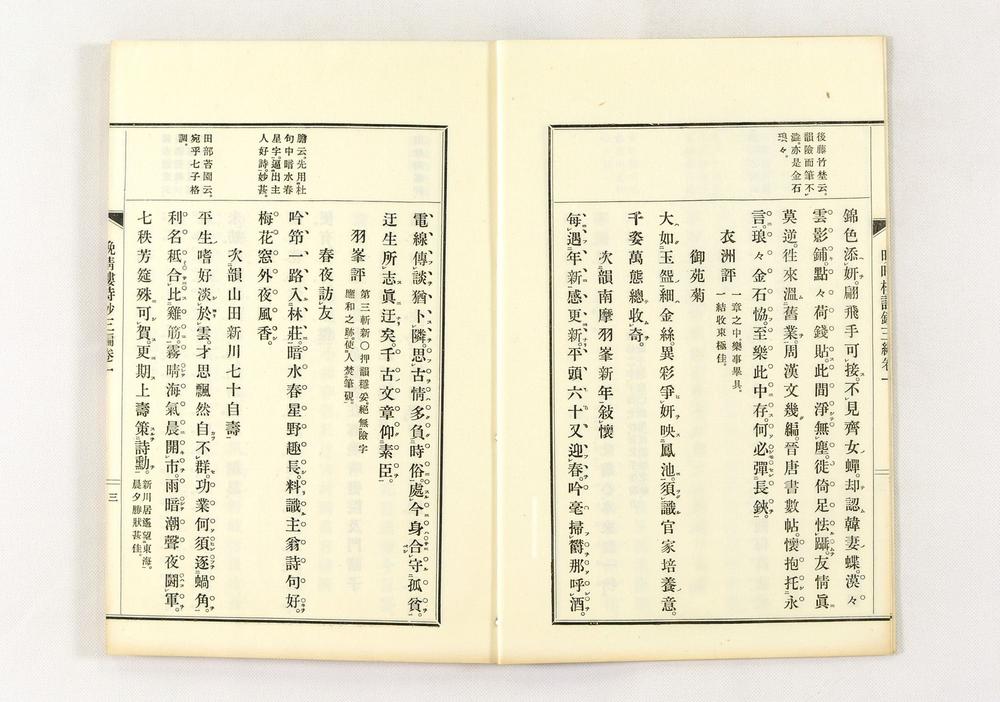 後藤竹埜云、
韻險而筆不
澁、亦是金石
琅々。
錦色添妍。翩飛手可接。不見齊女蟬。却認韓妻蝶。漠々
雲影鋪。點々荷錢貼。此間淨無塵。徙倚足怯躡。友情眞
莫逆。徃來溫舊業。周漢文幾編。晉唐書數帖。懷抱托永
言。琅々金石恊。至樂此中存。何必彈長鋏。
衣洲評
一章之中樂事畢具。
一結收束極佳。
御苑菊
大如玉盌細金絲。異彩爭妍映鳳池。須識官家培養意。
千姿萬態總收奇。
次韻南摩羽峯新年敍懷
每遇年新感更新。平頭六十又迎春。吟毫掃欝那呼酒。
電線傳談猶卜隣。思古情多負時俗。處今身合守孤貧。
迂生所志眞迂矣。千古文章仰素臣。
羽峯評
第三斬新○押韻穩妥、絕無險字
應和之跡、使人焚筆硯。
春夜訪友
膽云、先用杜
句中暗水春
星字、逼出主
人好詩、妙甚。
吟笻一路入林莊。暗水春星野趣長。料識主翁詩句好。
梅花窓外夜風香。
次韻山田新川七十自壽
田部苔園云、
宛乎七子格
調。
平生嗜好淡於雲。才思飄然自不群。功業何須逐蝸角。
利名秖合比雞筋。霧晴海氣晨開市。雨暗潮聲夜鬪軍。
七秩芳筵殊可賀。更期上壽策詩勳。
新川居遙望東海。
晨夕勝狀甚佳。
晚晴樓詩鈔三編卷一
三